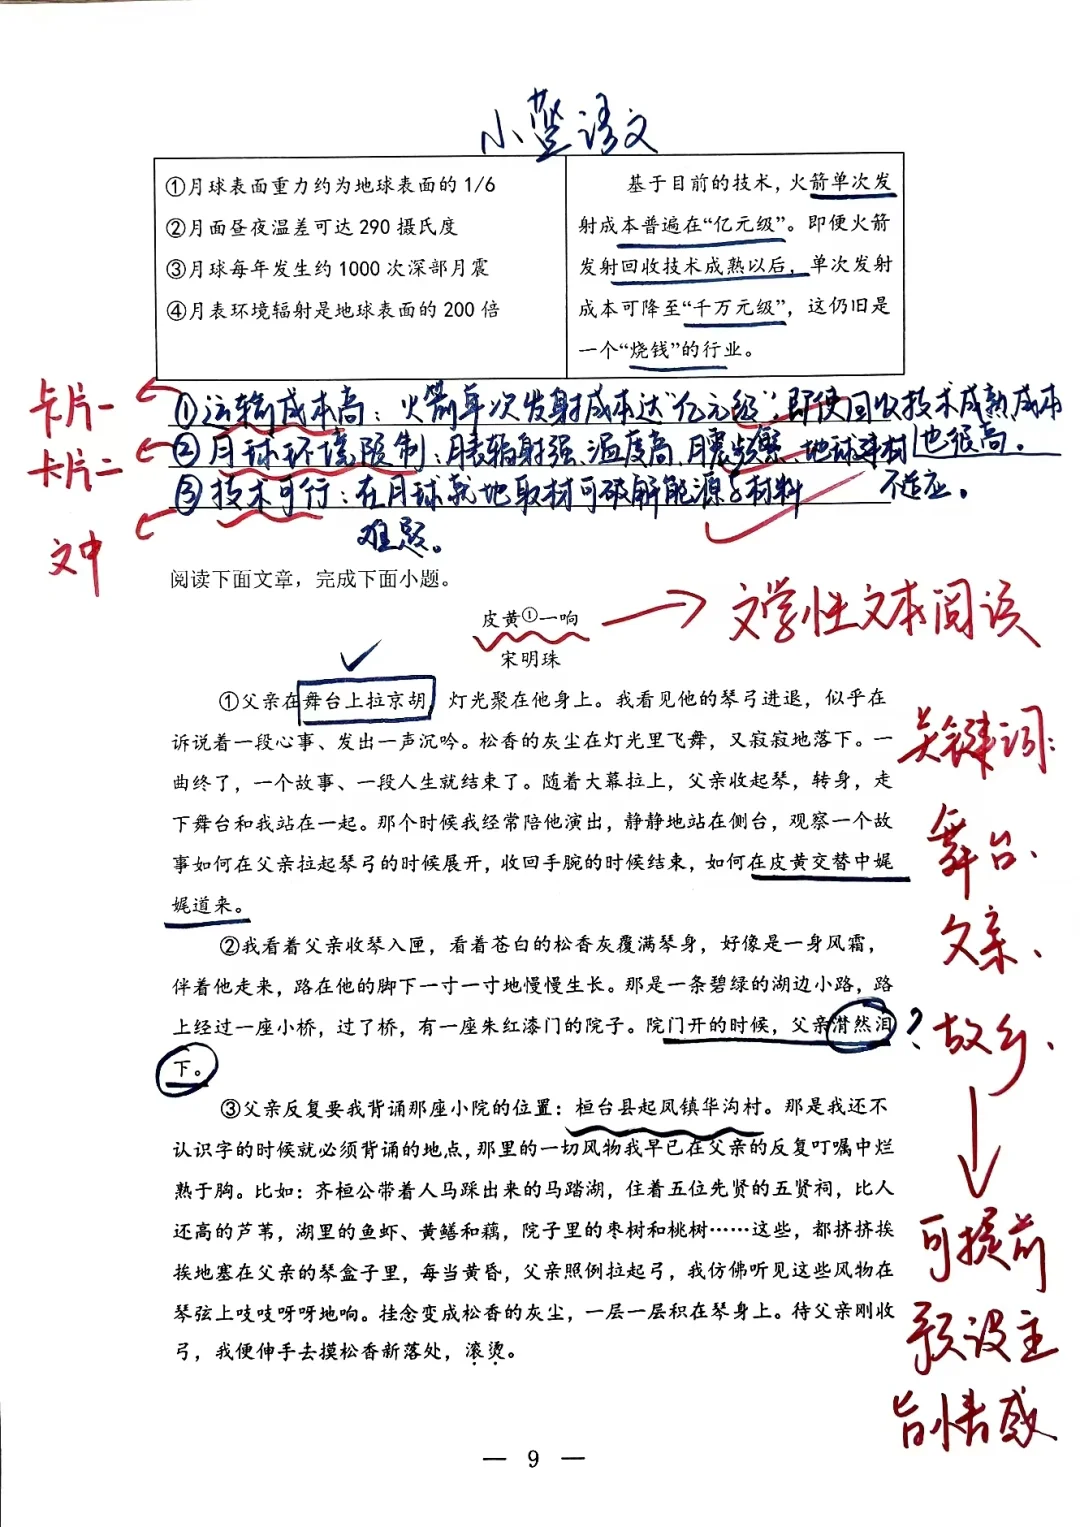 小蓝语文
①月球表面重力约为地球表面的 1/6
②月面昼夜温差可达 290 摄氏度
③月球每年发生约 1000 次深部月震
④月表环境辐射是地球表面的 200 倍
基于目前的技术，火箭单次发
射成本普遍在“亿元级”。即便火箭
发射回收技术成熟以后，单次发射
成本可降至“千万元级”，这仍旧是
一个“烧钱”的行业。
卡片一
①运输成本高：火箭单次发射成本达“亿元级”，即使回收技术成熟成本
也很高。
卡片二
②月球环境限制：月表辐射强、温度高、月震频繁、地球建材
不适应。
文中
③技术可行：在月球就地取材可破解能源与材料
难题。
阅读下面文章，完成下面小题。
皮黄①一响
文学性文本阅读
宋明珠
①父亲在舞台上拉京胡，灯光聚在他身上。我看见他的琴弓进退，似乎在
诉说着一段心事、发出一声沉吟。松香的灰尘在灯光里飞舞，又寂寂地落下。一
曲终了，一个故事、一段人生就结束了。随着大幕拉上，父亲收起琴，转身，走
下舞台和我站在一起。那个时候我经常陪他演出，静静地站在侧台，观察一个故
事如何在父亲拉起琴弓的时候展开，收回手腕的时候结束，如何在皮黄交替中娓
娓道来。
②我看着父亲收琴入匣，看着苍白的松香灰覆满琴身，好像是一身风霜，
伴着他走来，路在他的脚下一寸一寸地慢慢生长。那是一条碧绿的湖边小路，路
上经过一座小桥，过了桥，有一座朱红漆门的院子。院门开的时候，父亲潸然泪
下。
？
③父亲反复要我背诵那座小院的位置：桓台县起凤镇华沟村。那是我还不
认识字的时候就必须背诵的地点，那里的一切风物我早已在父亲的反复叮嘱中烂
熟于胸。比如：齐桓公带着人马踩出来的马踏湖，住着五位先贤的五贤祠，比人
还高的芦苇，湖里的鱼虾、黄鳝和藕，院子里的枣树和桃树……这些，都挤挤挨
挨地塞在父亲的琴盒子里，每当黄昏，父亲照例拉起弓，我仿佛听见这些风物在
琴弦上吱吱呀呀地响。挂念变成松香的灰尘，一层一层积在琴身上。待父亲刚收
弓，我便伸手去摸松香新落处，滚烫。
关键词：
舞台、
父亲、
故乡、
可提前
预设主
旨情感
— 9 —